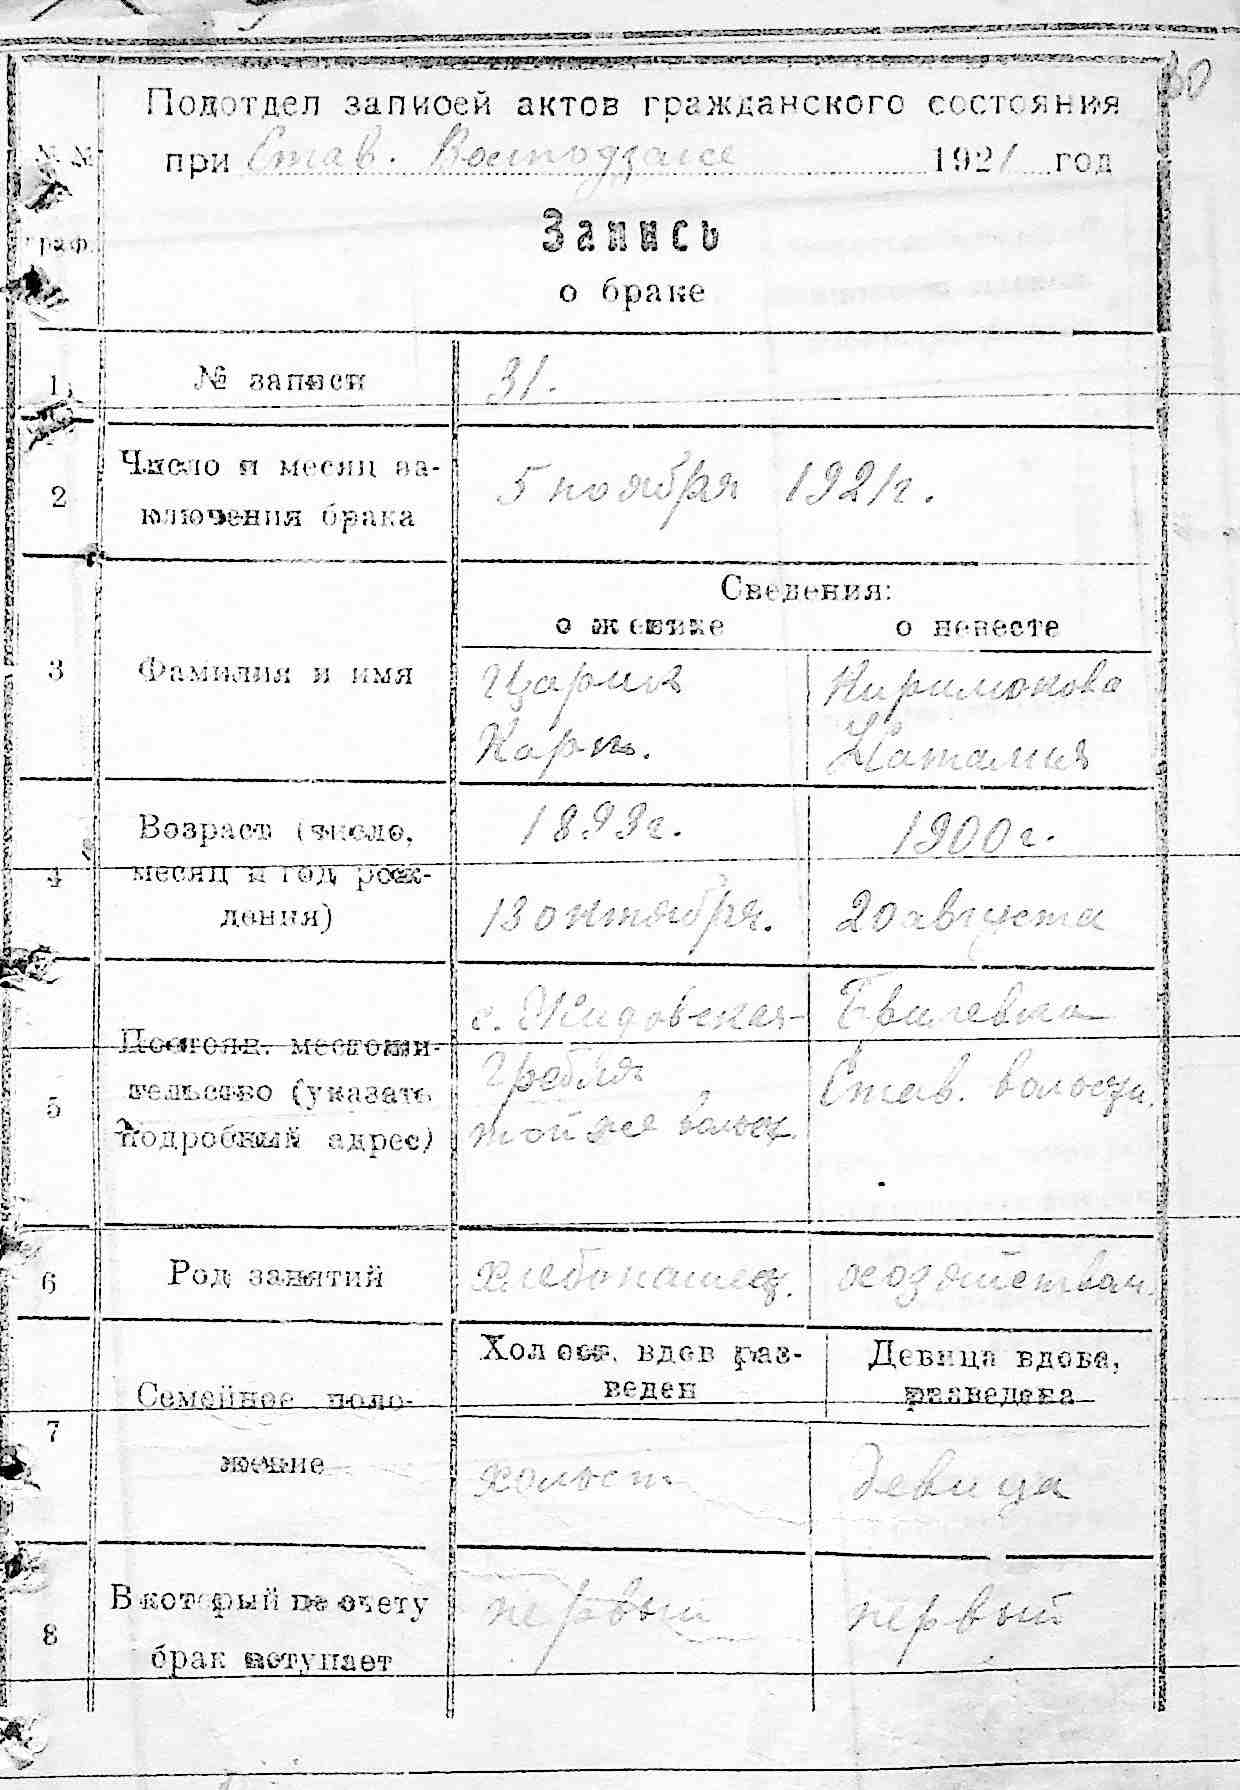 30
Подотдел записей актов гражданского состояния
при Став. Волподзагсе 1921 год
№ №
граф.
Запись
о браке
1 № записи 31.
2 Число и месяц за-
ключения брака
5 ноября 1921г.
Сведения:
о женихе о невесте
3 Фамилия и имя
Царик Киримонова
Карп. Наталия
4 Возраст (число,
месяц и год рож-
дения)
1893г. 1900г.
13 октября. 20 августа
5 Постоян. местожи-
тельство (указать
подробный адрес)
с. Жидовская-
Гребля
той же волост.
Став. волости.
6 Род занятий хлебопашец.
7 Семейное поло-
жение
Холост, вдов раз-
веден
Девица вдова,
разведена
холост девица
8 В который по счету
брак вступает
первый первый